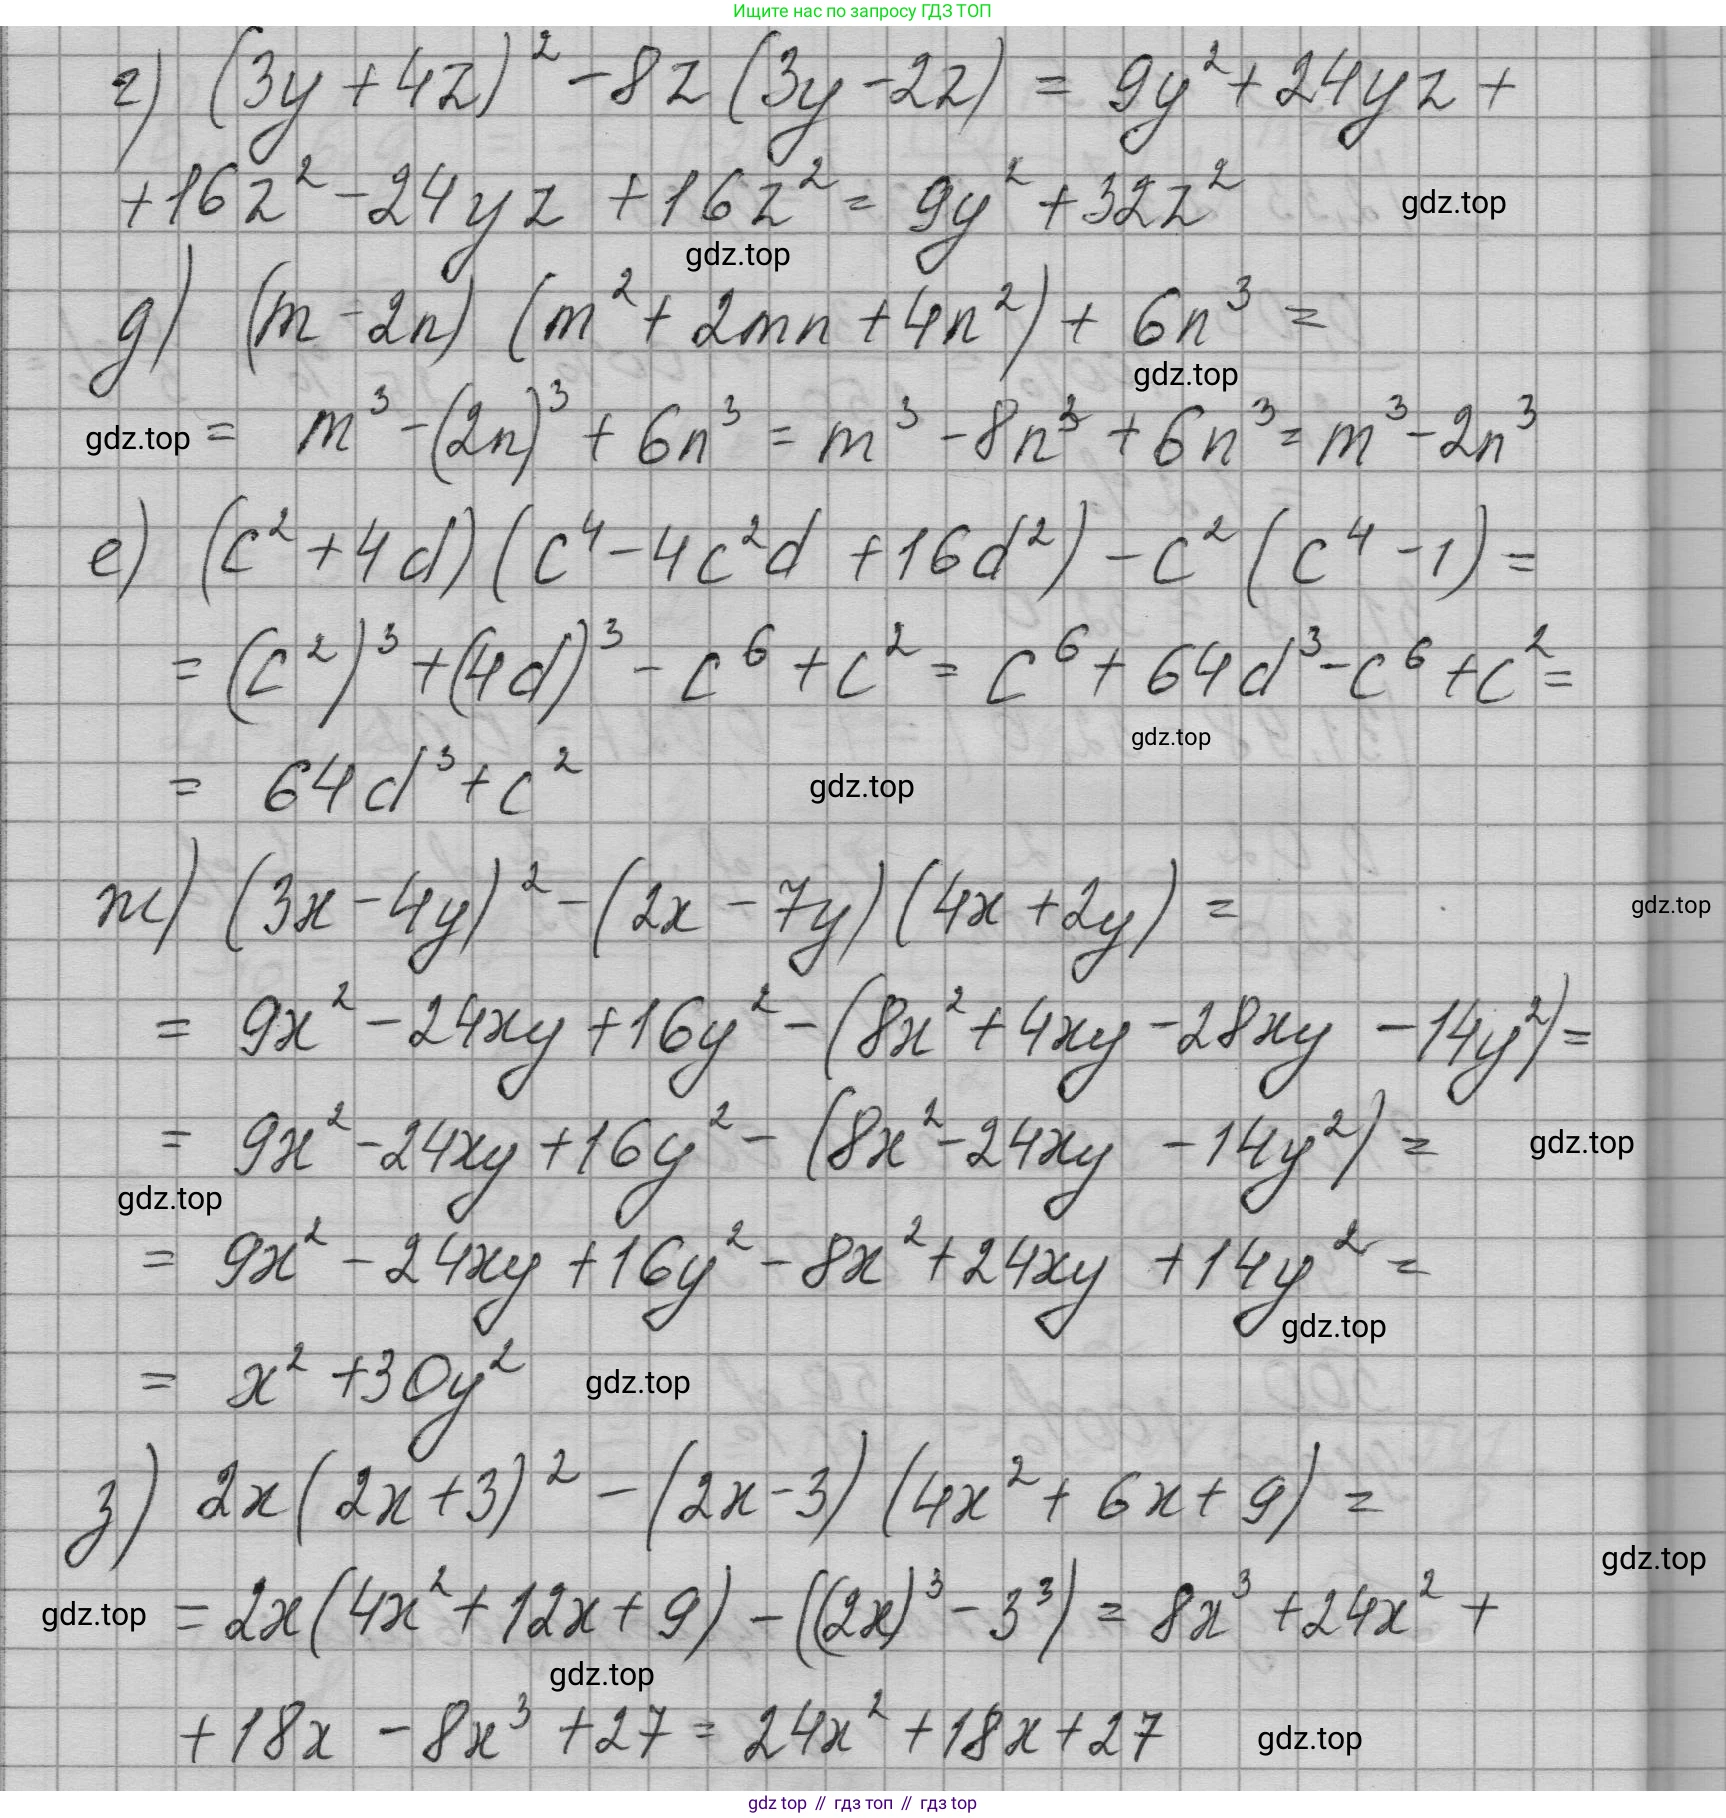 Ищите нас по запросу ГДЗ ТОП
г) (3y + 4z)² - 8z (3y - 2z) = 9y² + 24yz +
+ 16z² - 24yz + 16z² = 9y² + 32z² gdz.top
gdz.top
д) (m - 2n) (m² + 2mn + 4n²) + 6n³ =
gdz.top
gdz.top = m³ - (2n)³ + 6n³ = m³ - 8n³ + 6n³ = m³ - 2n³
е) (c² + 4d) (c⁴ - 4c²d + 16d²) - c² (c⁴ - 1) =
= (c²)³ + (4d)³ - c⁶ + c² = c⁶ + 64d³ - c⁶ + c² =
gdz.top
= 64d³ + c² gdz.top
ж) (3x - 4y)² - (2x - 7y) (4x + 2y) = gdz.top
= 9x² - 24xy + 16y² - (8x² + 4xy - 28xy - 14y²) =
= 9x² - 24xy + 16y² - (8x² - 24xy - 14y²) = gdz.top
gdz.top
= 9x² - 24xy + 16y² - 8x² + 24xy + 14y² =
gdz.top
= x² + 30y² gdz.top
з) 2x (2x + 3)² - (2x - 3) (4x² + 6x + 9) =
gdz.top
gdz.top = 2x (4x² + 12x + 9) - ((2x)³ - 3³) = 8x³ + 24x² +
gdz.top
+ 18x - 8x³ + 27 = 24x² + 18x + 27 gdz.top
gdz top // гдз топ // гдз top